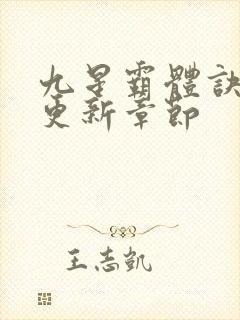 九星霸體訣
更新章節
王志凱